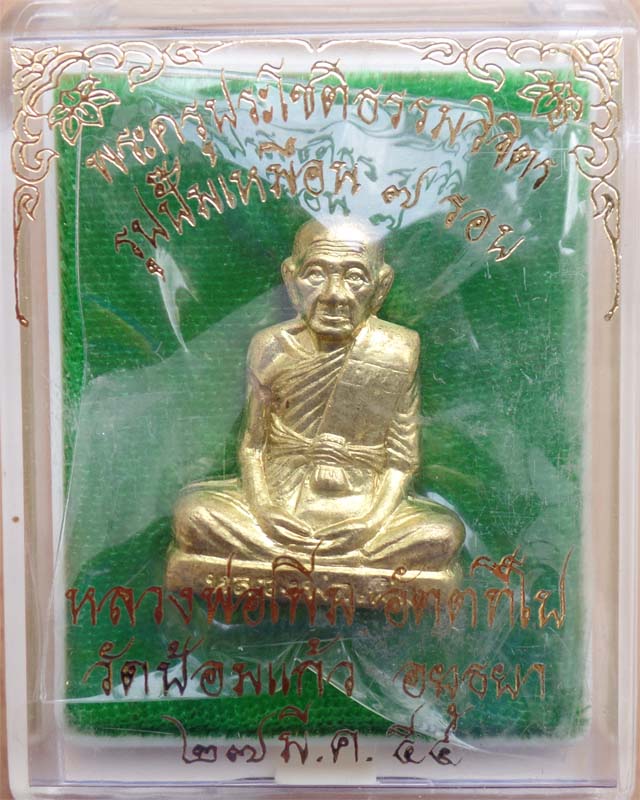 พระครูประโชติธรรมวิจิตร
รูปปั๊มเหมือน ๗ รอบ
หลวงพ่อเพิ่ม อัตตทีโป
วัดป้อมแก้ว อยุธยา
๒๗ มี.ค. ๕๕